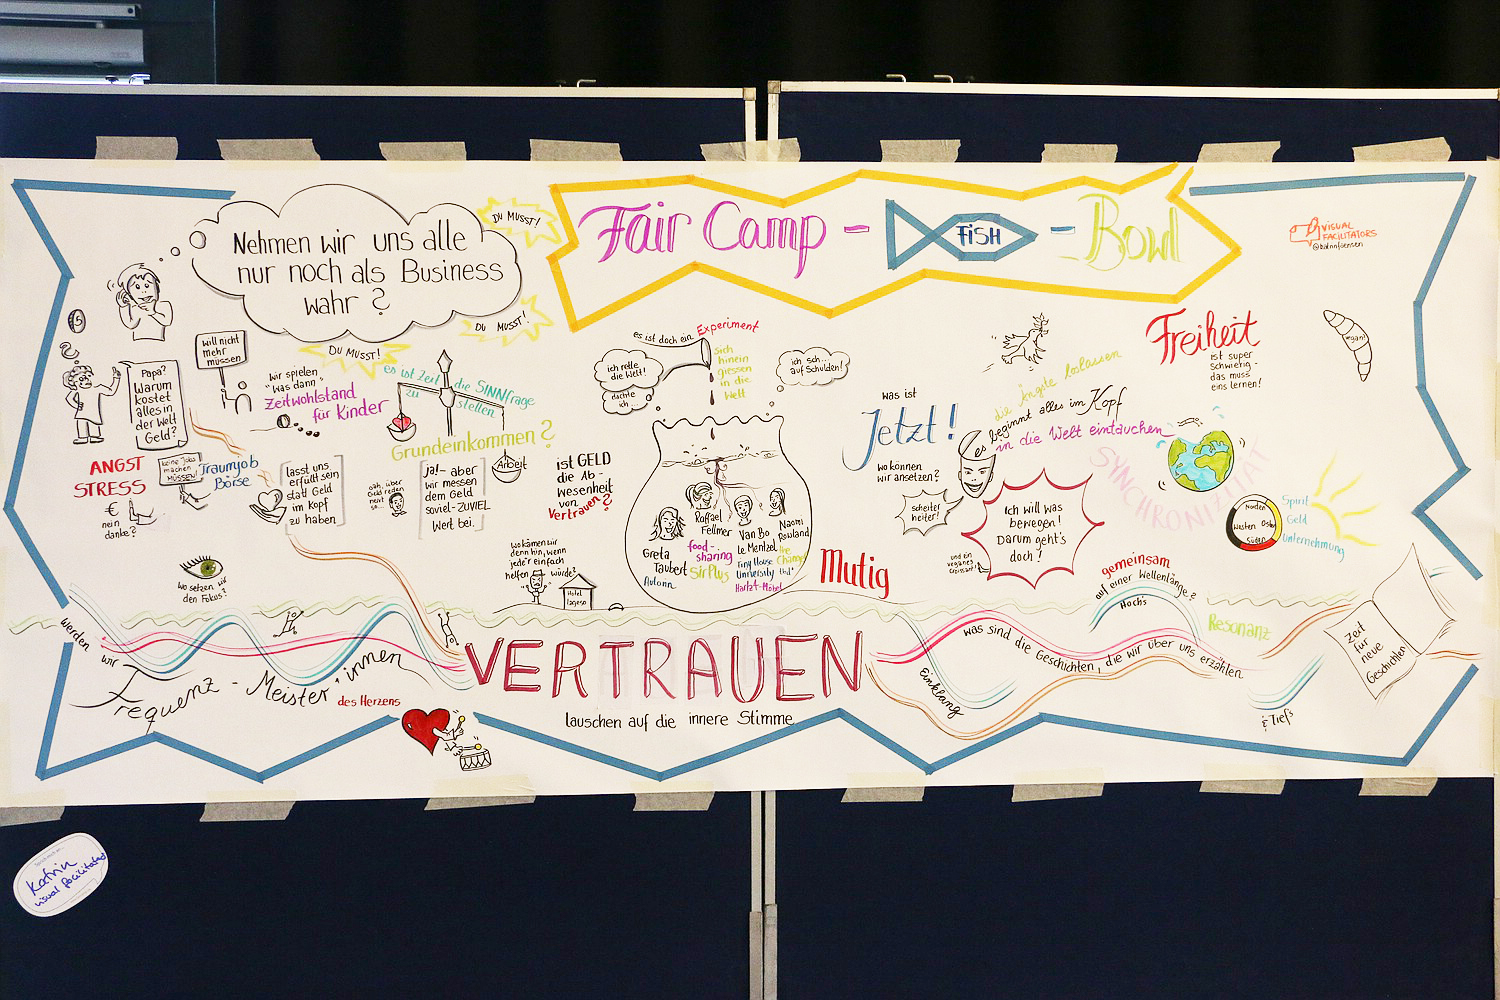 Fair Camp - FISH - Bowl
VISUAL
FACILITATORS
Nehmen wir uns alle
nur noch als Business
wahr?
DU MUSST!
DU MUSST!
DU MUSST!
5
will nicht
mehr
müssen
Papa?
Warum
kostet
alles in
der Welt
Geld?
wir spielen
"was dann"
Zeitwohlstand
für Kinder
es ist Zeit die SINNfrage
zu stellen
Grundeinkommen?
Arbeit
ANGST
STRESS
€
nein
danke?
keine Jobs
machen
MÜSSEN!
Traumjob
Börse
lasst uns
erfüllt sein
statt Geld
im Kopf
zu haben
oah, über
Geld reden
nervt
so...
ja!- aber
wir messen
dem Geld
soviel-ZUVIEL
Wert bei.
ist GELD
die Ab-
wesenheit
von
Vertrauen?
wo setzen wir
den Fokus?
wo kämen wir
denn hin, wenn
jede'r einfach
helfen würde?
Hotel
Lageso
es ist doch ein Experiment
sich
hinein
giessen
in die
Welt
ich rette
die Welt!
dachte
ich...
ich sch...
auf Schulden!
Greta
Taubert
Autorin
Raffael
Fellmer
food-
sharing
SirPlus
Van Bo
Le Mentzel
Tiny House
University
Hartz4-Möbel
Naomi
Rowland
Mutig
was ist
Jetzt!
wo können
wir ansetzen?
scheiter
heiter!
und ein
veganes
Croissant!
die Ängste loslassen
es beginnt alles im Kopf
in die Welt eintauchen
SYNCHRONIZITÄT
Ich will was
bewegen!
Darum geht's
doch!
Freiheit
ist super
schwierig-
das muss
eins lernen!
vegan!
Norden
Westen Osten
Süden
Spirit
Geld
Unternehmung
gemeinsam
auf einer Wellenlänge?
Hoch's
Resonanz
werden wir
Frequenz-Meister·innen
des Herzens
VERTRAUEN
lauschen auf die innere Stimme
Einklang
was sind die Geschichten, die wir über uns erzählen
& Tief's
Zeit
für
neue
Geschichten
Katrin
visual facilitators